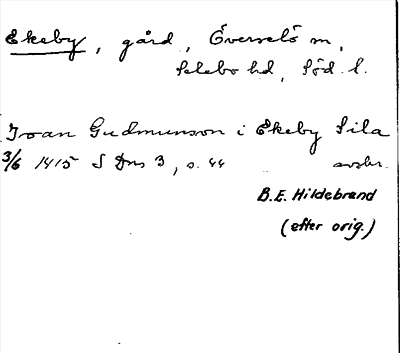 Ekeby, gård, Överselö sn,
Selebo hd, Söd. l.
Ivan Gudmunson i Ekeby Sila
3/6 1415 S Dns 3, s. 44 avskr.
B.E. Hildebrand
(efter orig.)